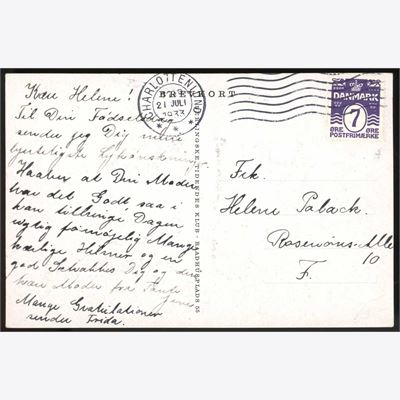 BREVKORT
CHARLOTTENLUND
21 JULI
1933
DANMARK
7
ØRE ØRE
POSTFRIMÆRKE
Kære Helene!
Til Din Fødselsdag
sender jeg Dig mine
hjerteligste Lykønskninger
Haaber at Din Moder
har det Godt saa i
kan tilbringe Dagen
rigtig fornøjelig Mange
kærlige Hilsner og en
god Dig og din
kære Moder fra Tante
Mange Gratulationer
sender Frida.
BERLINGSKE TIDENDES KLUB RAADHUSPLADS 55
Frk
Helene Palack.
Rosenørns-Alle
10
F.